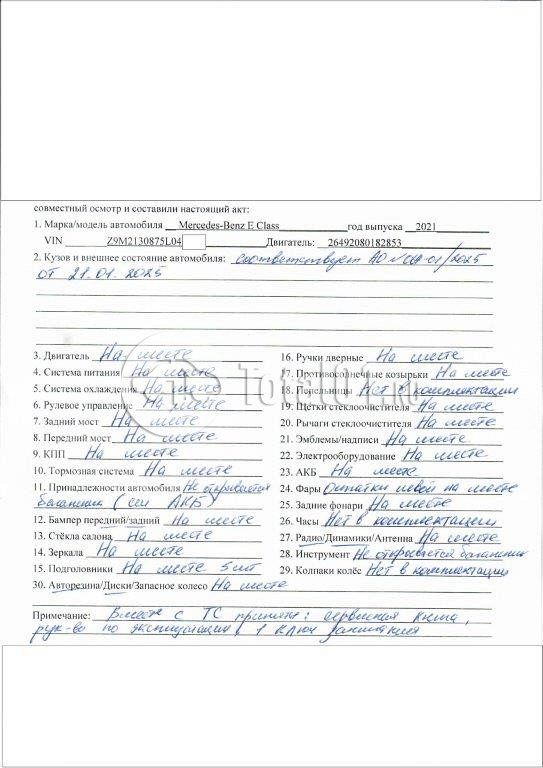 совместный осмотр и составили настоящий акт:
1. Марка/модель автомобиля Mercedes-Benz E Class год выпуска 2021
VIN Z9M2130875L04 Двигатель: 26492080182853
2. Кузов и внешнее состояние автомобиля: Соответствует АО №
от 21.01.2025
3. Двигатель На месте
4. Система питания На месте
5. Система охлаждения На месте
6. Рулевое управление На месте
7. Задний мост На месте
8. Передний мост На месте
9. КПП На месте
10. Тормозная система На месте
11. Принадлежности автомобиля Не открывается
багажник (сел АКБ)
12. Бампер передний/задний На месте
13. Стёкла салона На месте
14. Зеркала На месте
15. Подголовники На месте 5 шт
16. Ручки дверные На месте
17. Противосолнечные козырьки На месте
18. Пепельницы Нет в комплектации
19. Щётки стеклоочистителя На месте
20. Рычаги стеклоочистителя На месте
21. Эмблемы/надписи На месте
22. Электрооборудование На месте
23. АКБ На месте
24. Фары Остатки левой на месте
25. Задние фонари На месте
26. Часы Нет в комплектации
27. Радио/Динамики/Антенна На месте
28. Инструмент Не открывается багажник
29. Колпаки колёс Нет в комплектации
30. Авторезина/Диски/Запасное колесо На месте
Примечание: Вместе с ТС приняты: сервисная книга,
рук-во по эксплуатации, 1 ключ зажигания